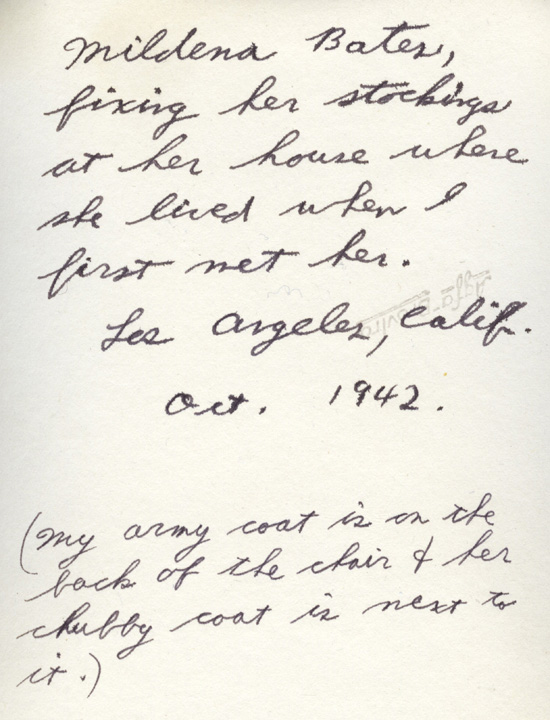 Mildena Bates,
fixing her stockings
at her house where
she lived when I
first met her.
Los Angeles, Calif.
Oct. 1942.
(my army coat is on the
back of the chair & her
chubby coat is next to
it.)